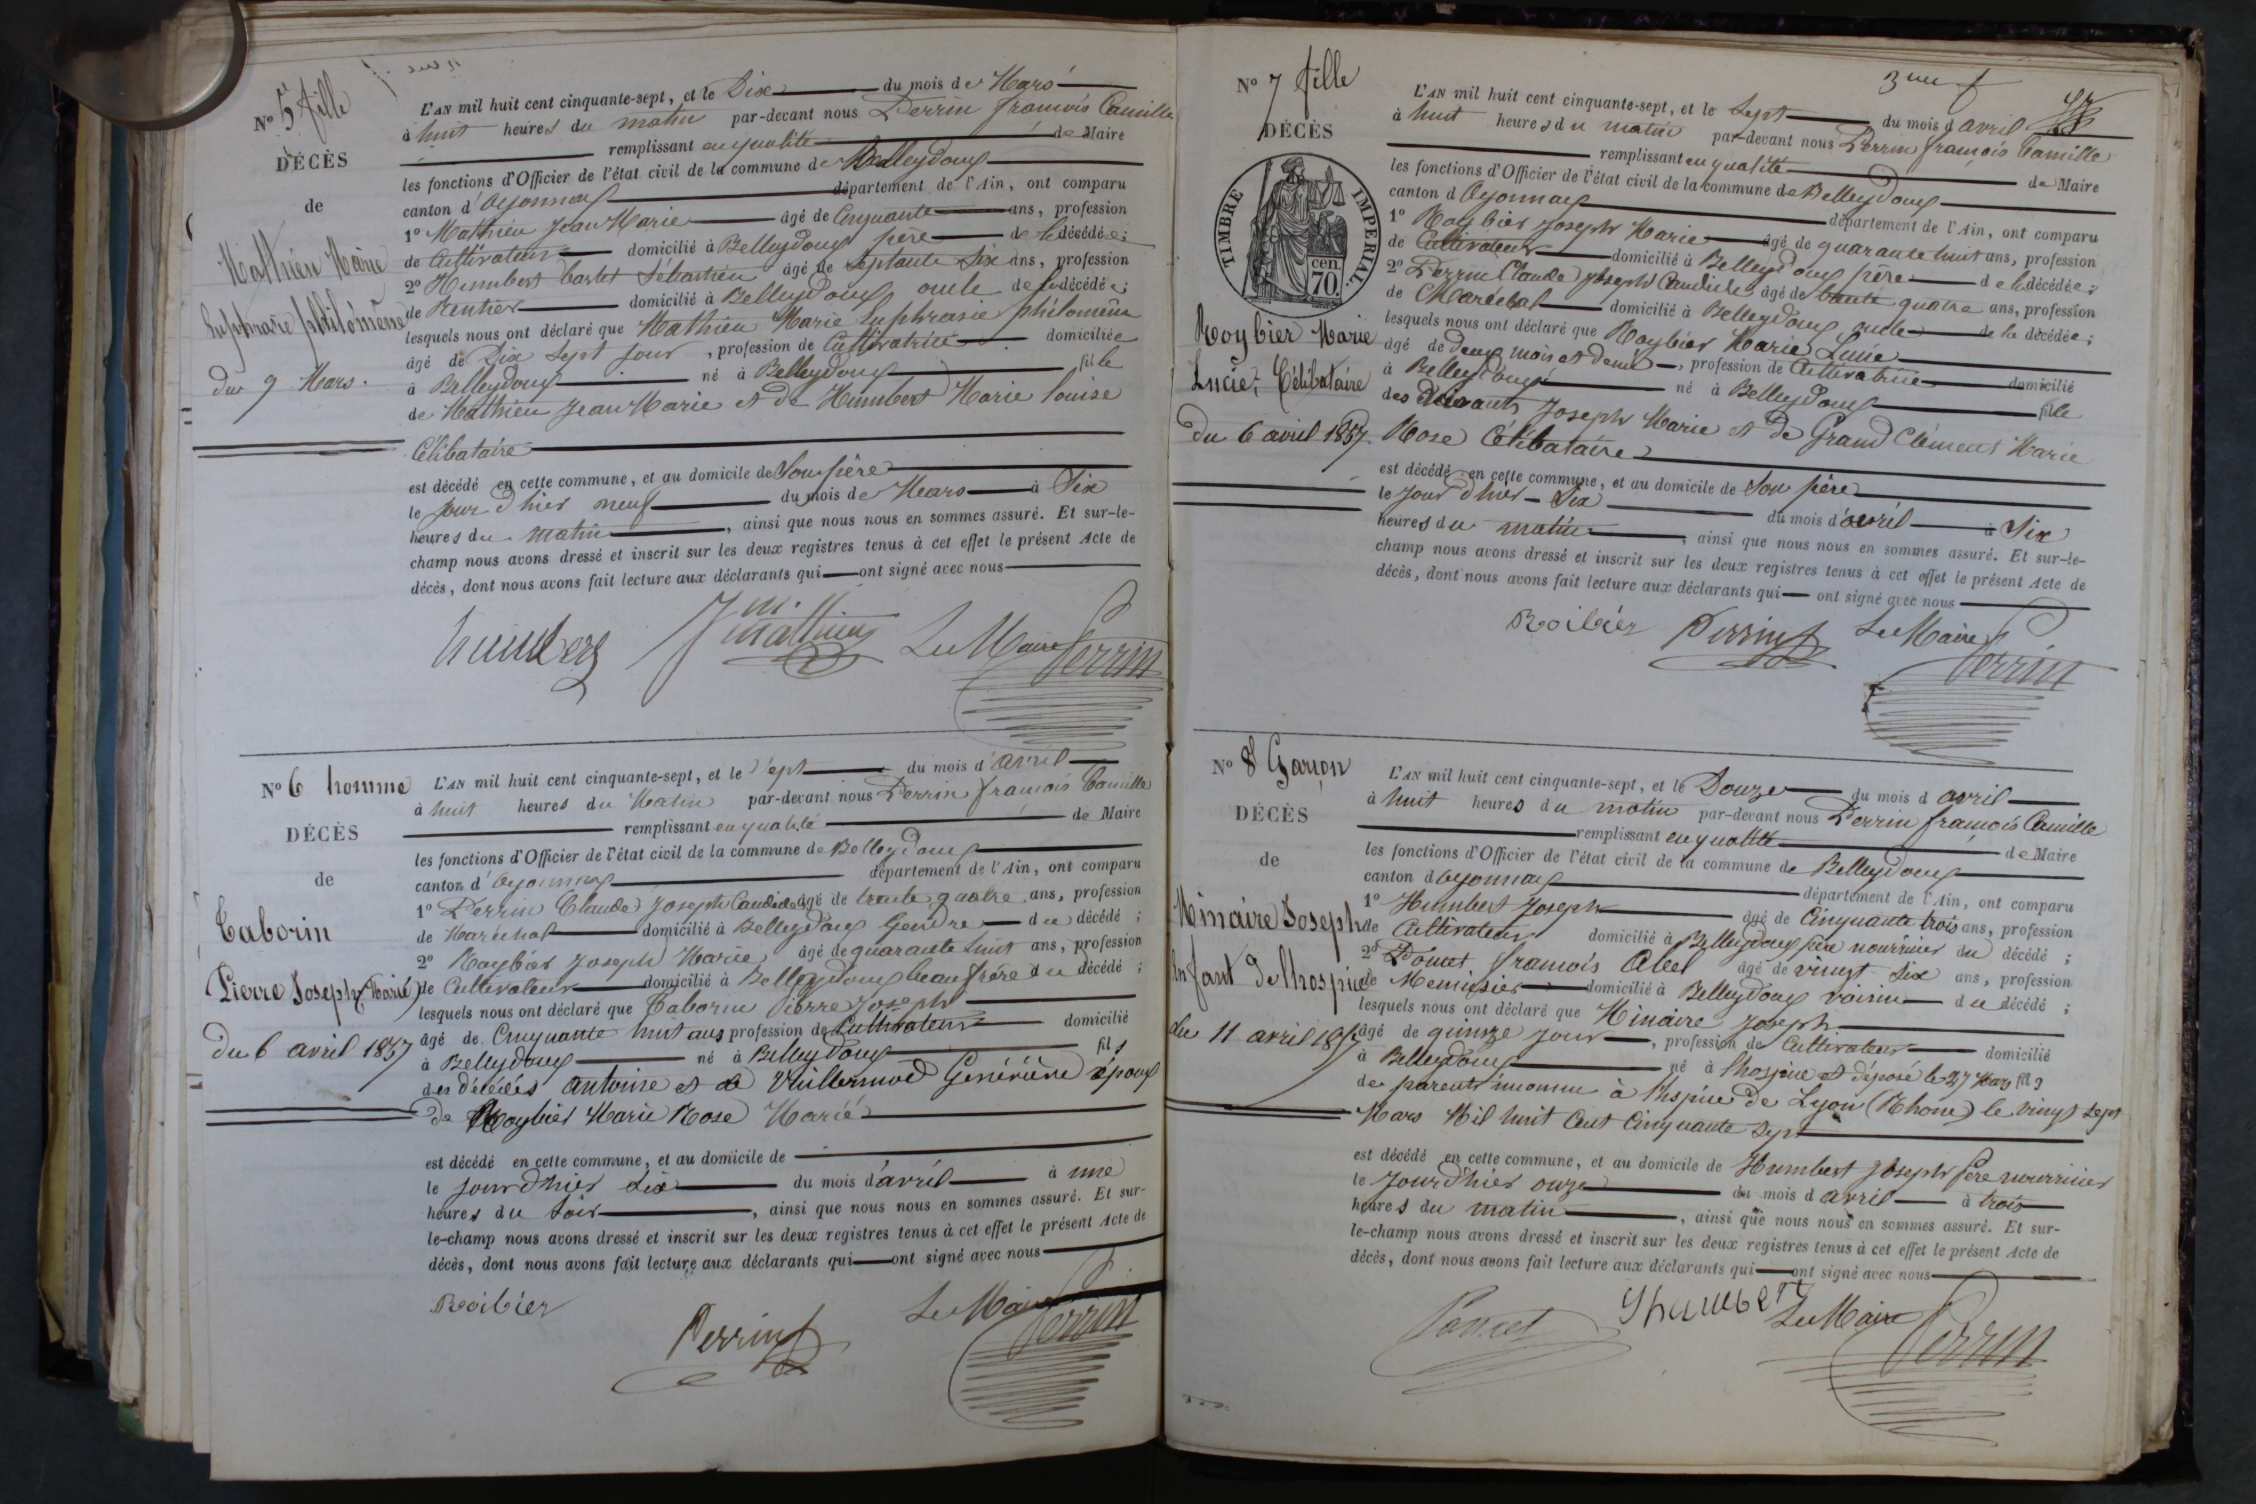 No 5 fille
DÉCÈS
de
Mathieu Marie
Euphrasie philomène
du 9 Mars.
L'AN mil huit cent cinquante-sept, et le Dix du mois de Mars
à huit heures du matin par-devant nous Perrin françois Camille
remplissant en qualité de Maire
les fonctions d'Officier de l'état civil de la commune de Belleydoux
canton d'Oyonnax département de l'Ain, ont comparu
1o Mathieu Jean Marie âgé de Cinquante ans, profession
de Cultivateur domicilié à Belleydoux père de la décédée;
2o Humbert Sébastien âgé de septante Six ans, profession
de Rentier domicilié à Belleydoux oncle de la décédée;
lesquels nous ont déclaré que Mathieu Marie Euphrasie philomène
âgé de Dix Sept jour, profession de Cultivatrice domiciliée
à Belleydoux né à Belleydoux fille
de Mathieu Jean Marie et de Humbert Marie louise
Célibataire
est décédé en cette commune, et au domicile de Son père
le jour d'hier neuf du mois de Mars à Six
heures du matin, ainsi que nous nous en sommes assuré. Et sur-le-
champ nous avons dressé et inscrit sur les deux registres tenus à cet effet le présent Acte de
décès, dont nous avons fait lecture aux déclarants qui ont signé avec nous
humbert J m. mathieu Le Maire Perrin
No 6 homme
DÉCÈS
de
Taborin
Pierre Joseph (Marié)
du 6 avril 1857
L'AN mil huit cent cinquante-sept, et le Sept du mois d'avril
à huit heures du Matin par-devant nous Perrin françois Camille
remplissant en qualité de Maire
les fonctions d'Officier de l'état civil de la commune de Belleydoux
canton d'Oyonnax département de l'Ain, ont comparu
1o Perrin Claude Joseph Candide âgé de trente quatre ans, profession
de Maréchal domicilié à Belleydoux Gendre du décédé;
2o Roybier Joseph Marie âgé de quarante huit ans, profession
de Cultivateur domicilié à Belleydoux beau frère du décédé;
lesquels nous ont déclaré que Taborin Pierre Joseph
âgé de Cinquante huit ans profession de Cultivateur domicilié
à Belleydoux né à Belleydoux fils
des décédés antoine et de Vuillermoz Geneviève époux
de Roybier Marie Rose Marié
est décédé en cette commune, et au domicile de
le jour d'hier Six du mois d'avril à une
heures du Soir, ainsi que nous nous en sommes assuré. Et sur-
le-champ nous avons dressé et inscrit sur les deux registres tenus à cet effet le présent Acte de
décès, dont nous avons fait lecture aux déclarants qui ont signé avec nous
Roibier Perrin Le Maire Perrin
3me f
No 7 fille
DÉCÈS
TIMBRE IMPERIAL.
cen
70.
Roybier Marie
Lucie, Célibataire
du 6 avril 1857.
L'AN mil huit cent cinquante-sept, et le Sept du mois d'avril
à huit heures du matin par-devant nous Perrin françois Camille
remplissant en qualité de Maire
les fonctions d'Officier de l'état civil de la commune de Belleydoux
canton d'Oyonnax département de l'Ain, ont comparu
1o Roybier Joseph Marie âgé de quarante huit ans, profession
de Cultivateur domicilié à Belleydoux père de la décédée;
2o Perrin Claude Joseph Candide âgé de trente quatre ans, profession
de Maréchal domicilié à Belleydoux oncle de la décédée;
lesquels nous ont déclaré que Roybier Marie Lucie
âgé de deux mois et demi, profession de Cultivatrice domicilié
à Belleydoux né à Belleydoux fille
des vivants Joseph Marie et de Grand Clément Marie
Rose Célibataire
est décédé en cette commune, et au domicile de Son père
le jour d'hier Six du mois d'avril à Six
heures du matin, ainsi que nous nous en sommes assuré. Et sur-le-
champ nous avons dressé et inscrit sur les deux registres tenus à cet effet le présent Acte de
décès, dont nous avons fait lecture aux déclarants qui ont signé avec nous
Roibier Perrin Le Maire Perrin
No 8 Garçon
DÉCÈS
de
Minaire Joseph
Enfant de l'hospice
du 11 avril 1857
L'AN mil huit cent cinquante-sept, et le Douze du mois d'avril
à huit heures du matin par-devant nous Perrin françois Camille
remplissant en qualité de Maire
les fonctions d'Officier de l'état civil de la commune de Belleydoux
canton d'Oyonnax département de l'Ain, ont comparu
1o Humbert Joseph âgé de Cinquante trois ans, profession
de Cultivateur domicilié à Belleydoux père nourricier du décédé;
2o Poncet françois Abel âgé de vingt Six ans, profession
de Menuisier domicilié à Belleydoux voisin du décédé;
lesquels nous ont déclaré que Minaire Joseph
âgé de quinze jour, profession de Cultivateur domicilié
à Belleydoux né à l'hospice et déposé le 27 Mars fils
de parents inconnu à l'hspice de Lyon (Rhône) le vingt Sept
Mars Mil huit Cent Cinquante Sept
est décédé en cette commune, et au domicile de Humbert Joseph père nourricier
le jour d'hier onze du mois d'avril à trois
heures du matin, ainsi que nous nous en sommes assuré. Et sur-
le-champ nous avons dressé et inscrit sur les deux registres tenus à cet effet le présent Acte de
décès, dont nous avons fait lecture aux déclarants qui ont signé avec nous
Poncet J humbert Le Maire Perrin